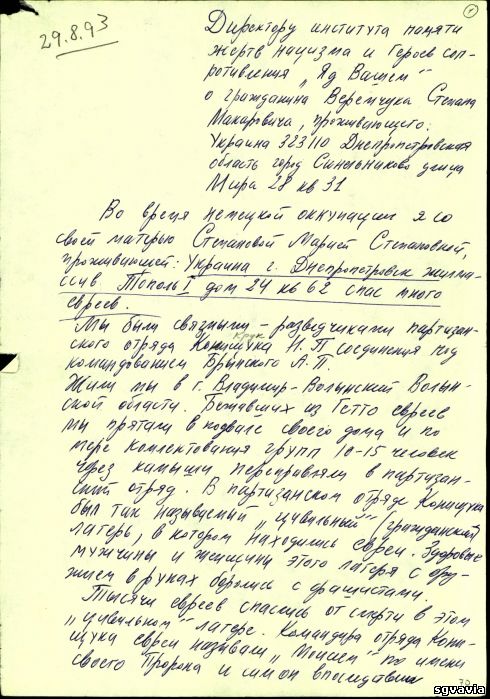 1
29.8.93
Директору института памяти
жертв нацизма и Героев соп-
ротивления „Яд Вашем"
о гражданина Веремчука Степана
Макаровича, проживающего:
Украина 323110 Днепропетровская
область город Синельниково улица
Мира 28 кв 31
Во время немецкой оккупации я со
своей матерью Степановой Марией Степановной,
проживающей: Украина г. Днепропетровск жилмас-
сив Тополь I дом 24 кв 62 спас много
евреев.
Мы были связными - разведчиками партизан-
ского отряда Конищука Н.П соединения под
командованием Брынского А.П.
Жили мы в г. Владимир-Волынский Волын-
ской области. Бежавших из Гетто евреев
мы прятали в подвале своего дома и по
мере комлектования групп 10-15 человек
через камыши переправляли в партизан-
ский отряд. В партизанском отряде Конищука
был так называемый „цивильный" (гражданский)
лагерь, в котором находились евреи. Здоровые
мужчины и женщины этого лагеря с ору-
жием в руках боролись с фашистами.
Тысячи евреев спаслись от смерти в этом
„цивильном" лагере. Командира отряда Кони-
щука евреи называли „Моисей" по имени
своего Пророка и им он впоследствии
70
sgvavia